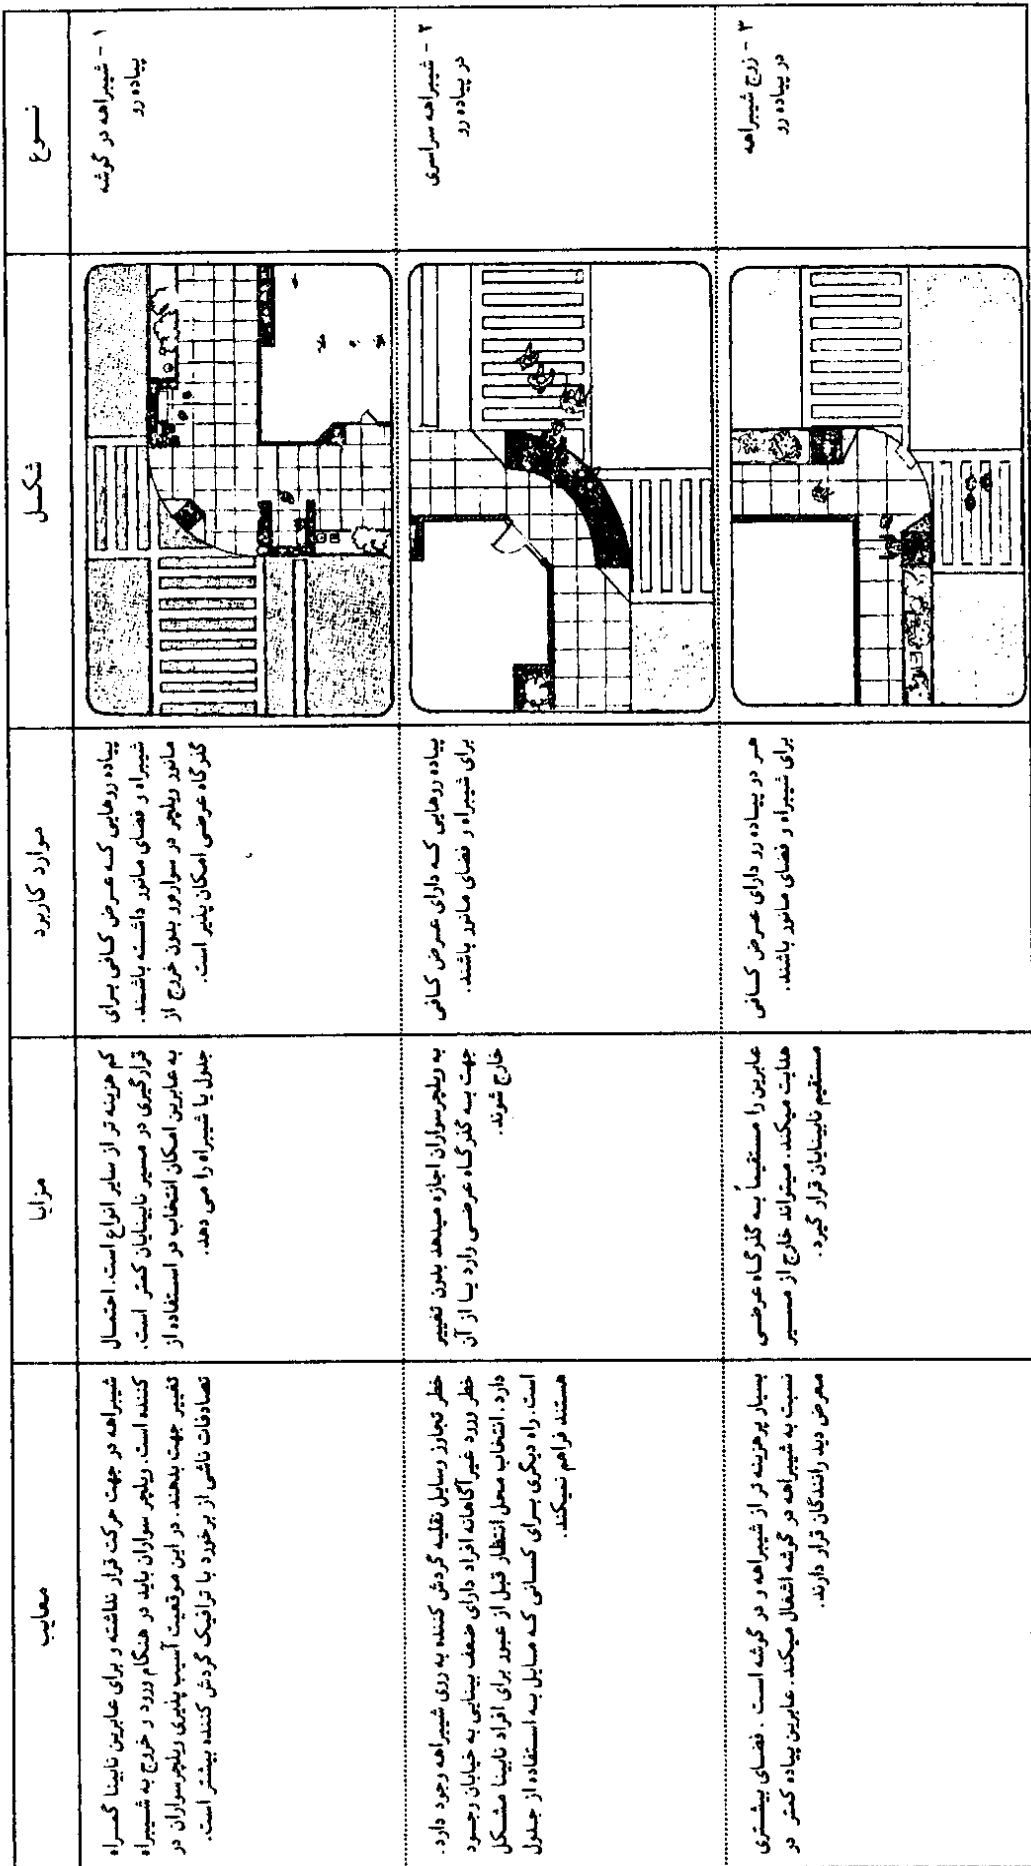 نـــوع
شکـل
موارد کاربرد
مزایا
معایب
۱ - شیبراهه در گوشه
پیاده رو
پیاده روهایی کـه عـرض کـافی بـرای
شیبراه و فضای مـانور داشـته باشـند.
مانور ویلچر در سوارەرو بدون خروج از
گذرگاه عرضی امکان پذیر است.
کم هزینه تر از سایر انواع است. احتمـال
قرارگیری در مسیر نابینایان کمتر است.
به عـابرین امکـان انتخاب در استفاده از
جدول یا شیبراه را می دهد.
شیبراهه در جهت حرکت قرار نداشته و برای عـابرین نابینـا گمـراه
کننده است. ویلچر سواران باید در هنگام ورود و خروج به شـیبراه
تغییر جهت بدهند. در این موقعیت آسیب پذیری ویلچرسواران در
تصادفات ناشی از برخورد با ترافیک گردش کننده بیشتر است.
۲ - شیبراهه سراسری
در پیاده رو
پیاده روهایی کـه دارای عـرض کـافی
برای شیبراه و فضای مـانور باشند.
به ویلچرسواران اجازه میدهد بدون تغییر
جهت بـه گذرگـاه عرضـی وارد یـا از آن
خارج شوند.
خطر تجاوز وسایل نقلیه گردش کننده به روی شیبراهه وجود دارد.
خطر ورود غیرآگاهانه افراد دارای ضعف بینایی به خیابان وجـود
دارد. انتخاب محل انتظار قبل از عبور برای افراد نابینا مشـکل
است. راه دیگری بـرای کسـانی کـه مـایل بـه استفاده از جـدول
هستند فراهم نمیکند.
۳ - زوج شیبراهه
در پیاده رو
هـر دو پیـاده رو دارای عـرض کـافی
برای شیبراه و فضای مـانور باشند.
عابرین را مستقیماً بـه گذرگـاه عرضـی
هدایت میکند. میتواند خارج از مسـیر
مستقیم نابینایان قرار گیرد.
بسیار پرهزینه تر از شیبراهه و در گوشه است. فضـای بیشـتری
نسبت به شیبراهه در گوشه اشغال میکند. عابرین پیاده کمتر در
معرض دید رانندگان قرار دارند.